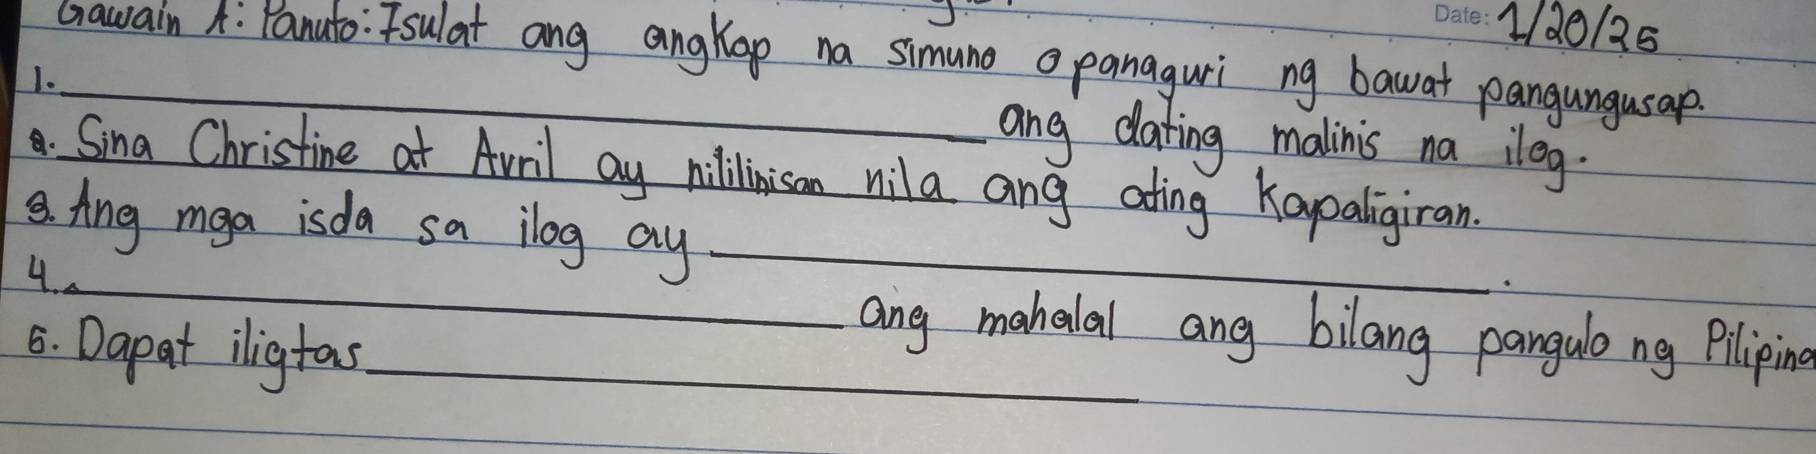 Date: 1/20/25
Gawain A: Panuto: Isulat ang angkap na simuno o panaguri ng bawat pangungusap.
1. ____________ ang dating malinis na ilog.
2. Sina Christine at Avril ay nililinisan nila ang ating kapaligiran.
3. Ang mga isda sa ilog ay ____________.
4. ____________ ang mahalal ang bilang pangulo ng Pilipina
5. Dapat iligtas ____________